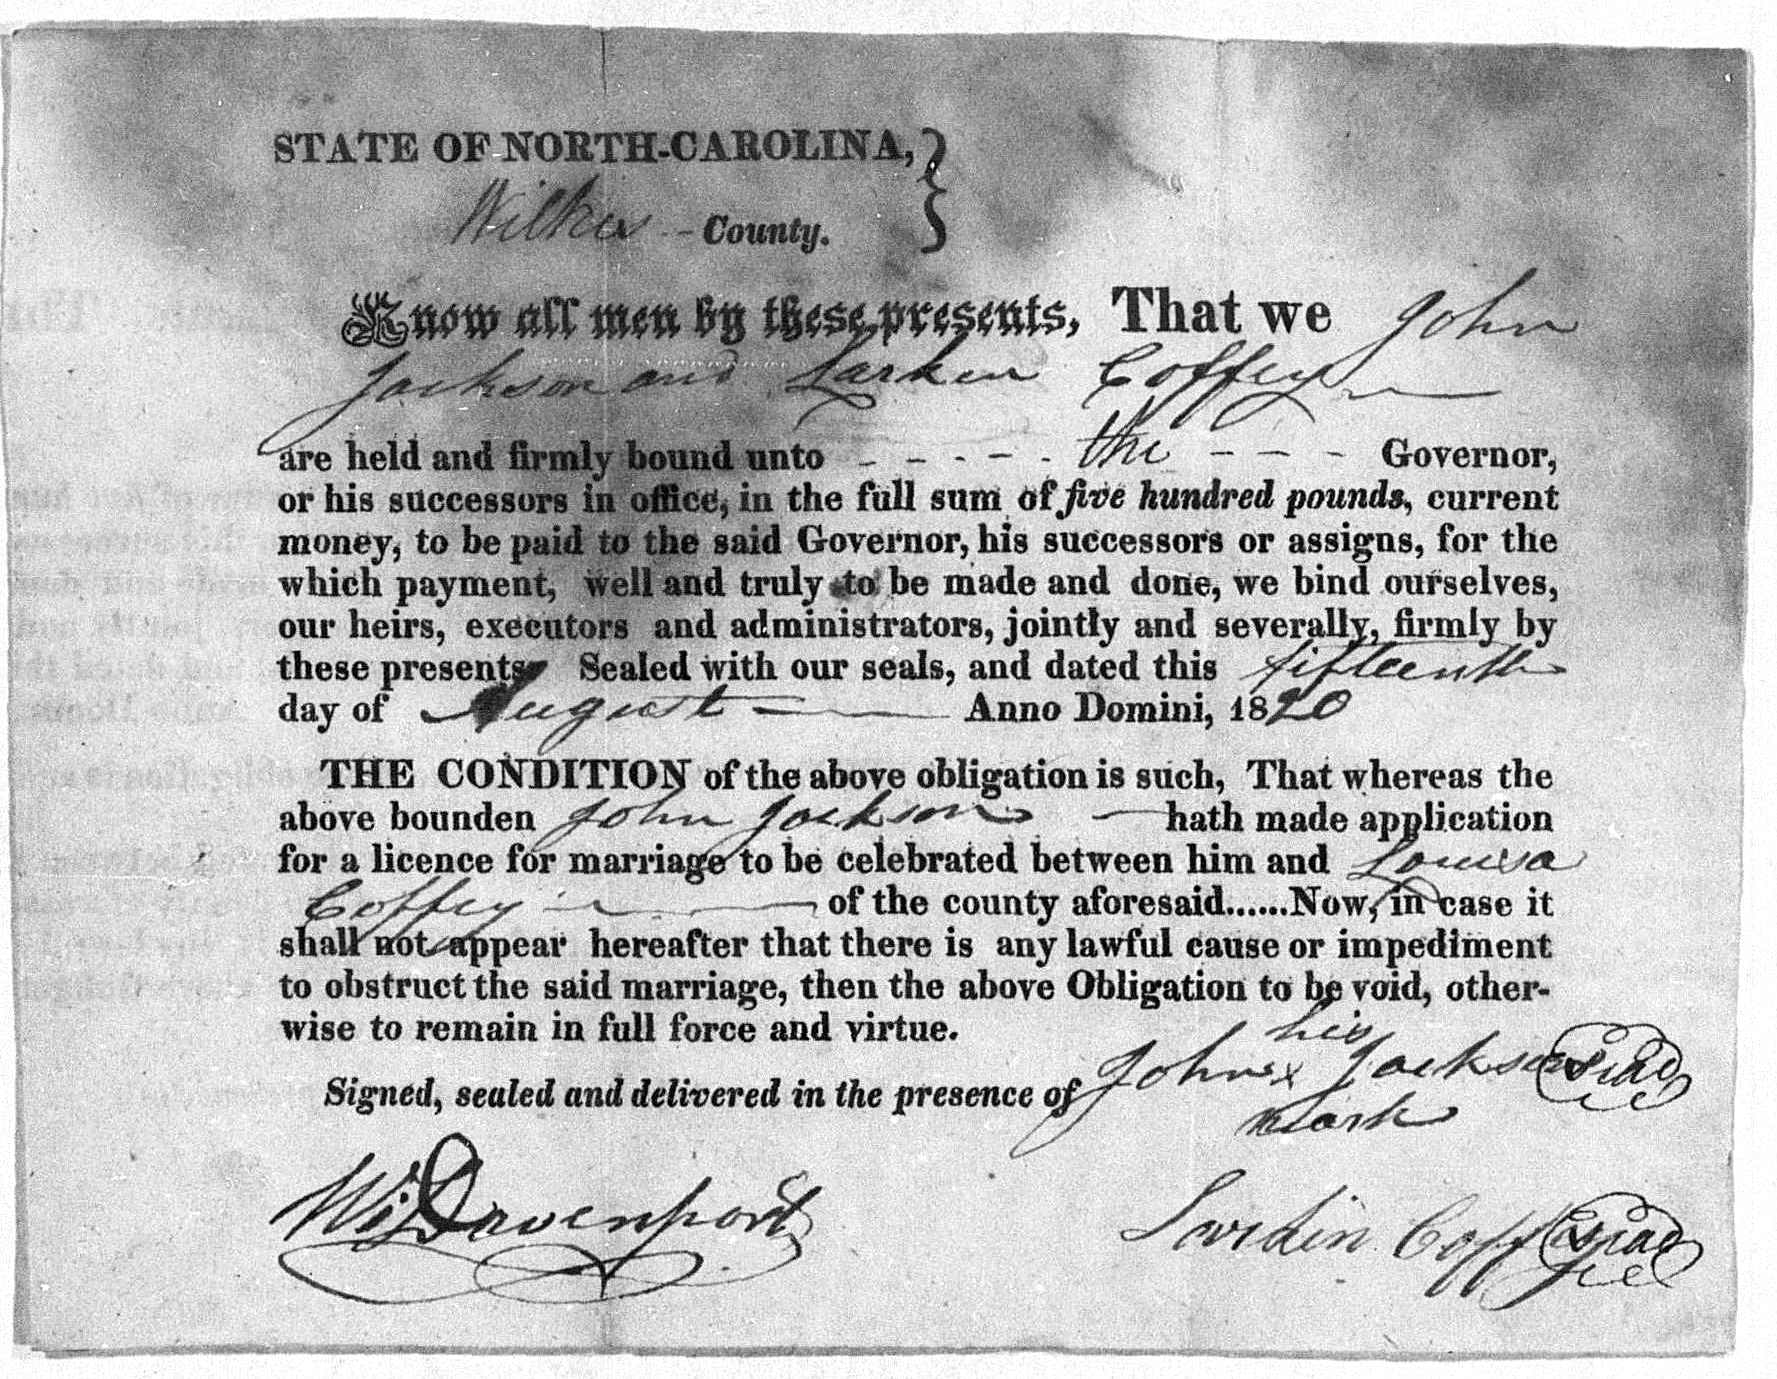 STATE OF NORTH-CAROLINA,
Wilkes County.
Know all men by these presents, That we John
Jackson and Larken Coffey
are held and firmly bound unto - - - - - the - - - Governor,
or his successors in office, in the full sum of five hundred pounds, current
money, to be paid to the said Governor, his successors or assigns, for the
which payment, well and truly to be made and done, we bind ourselves,
our heirs, executors and administrators, jointly and severally, firmly by
these presents. Sealed with our seals, and dated this fifteenth
day of August Anno Domini, 1820
THE CONDITION of the above obligation is such, That whereas the
above bounden John Jackson hath made application
for a licence for marriage to be celebrated between him and Louisa
Coffey of the county aforesaid......Now, in case it
shall not appear hereafter that there is any lawful cause or impediment
to obstruct the said marriage, then the above Obligation to be void, other-
wise to remain in full force and virtue.
his
Signed, sealed and delivered in the presence of John x Jackson Seal
mark
Wm Davenport
Larkin Coffey Seal